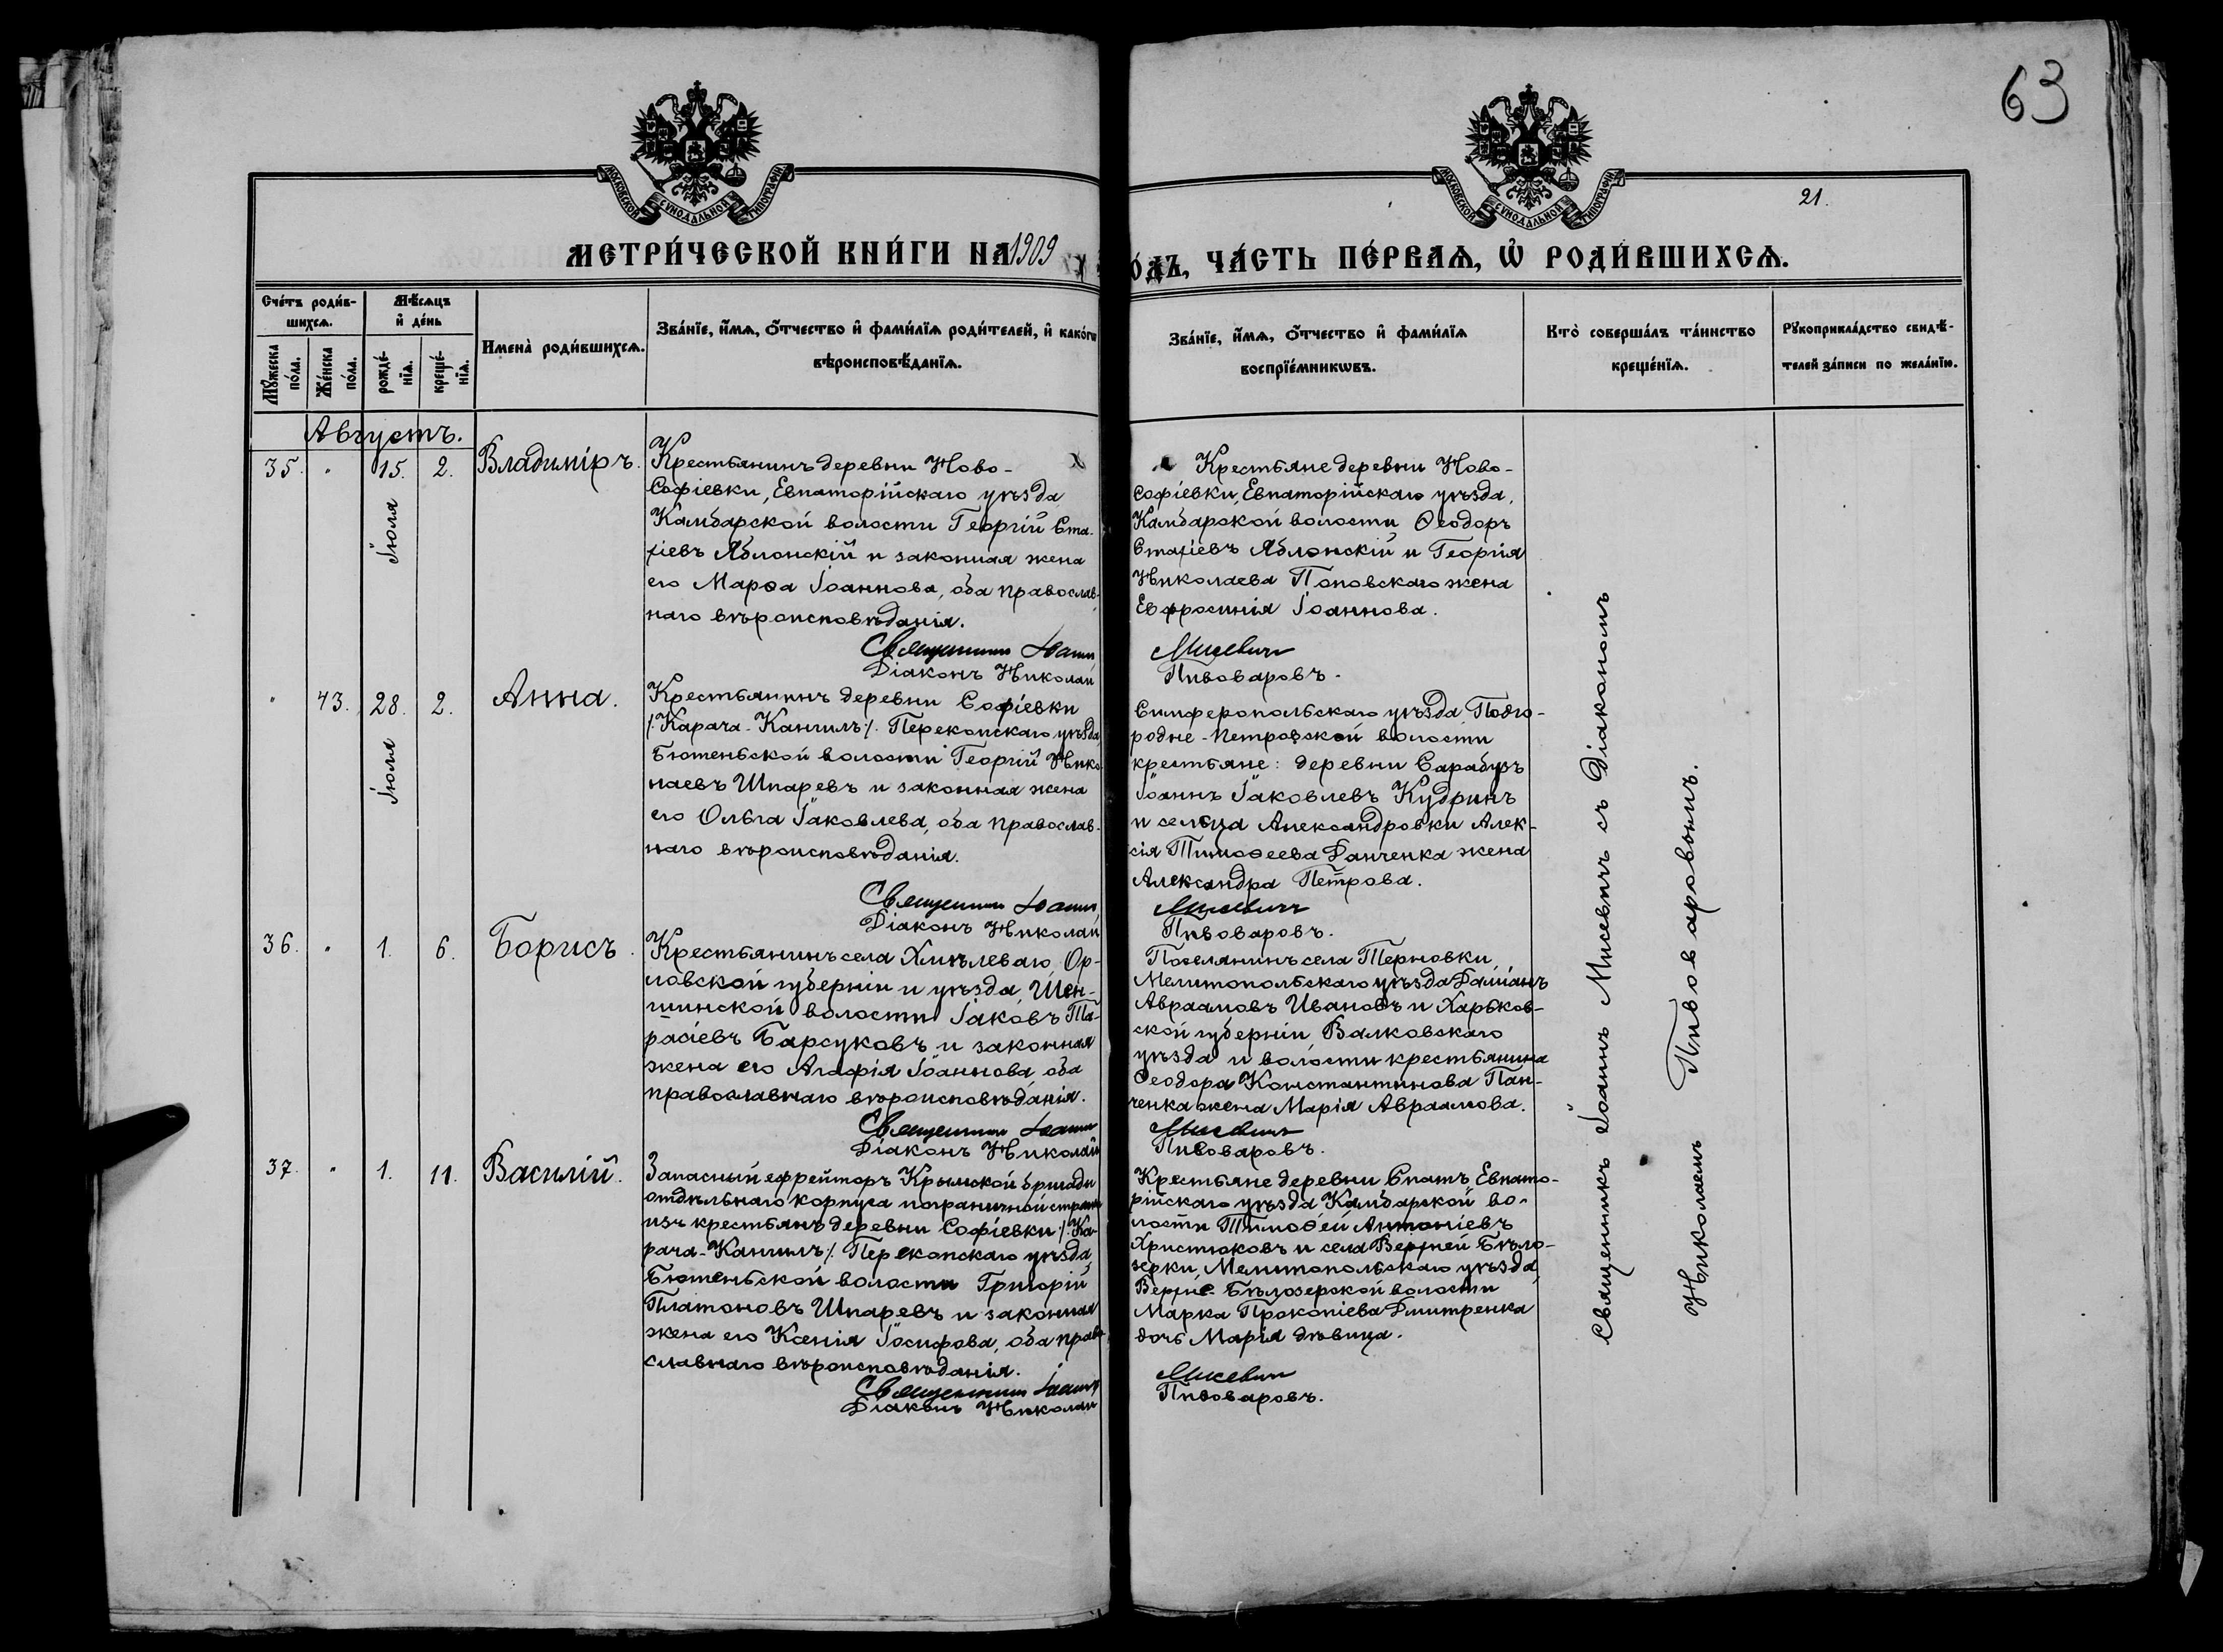 63
МОСКОВСКОЙ СУНОДАЛЬНОЙ ТИПОГРАФІИ
МОСКОВСКОЙ СУНОДАЛЬНОЙ ТИПОГРАФІИ
21.
МЕТРИ́ЧЕСКОЙ КНИ́ГИ НА 1909
О́ДЪ, ЧА́СТЬ ПЕ́РВАѦ, Ѡ҆ РОДИ́ВШИХСѦ.
Сче́тъ роди́в-
шихсѧ.
Мѣ́сѧцъ
и҆ де́нь
Мꙋ́жеска
по́ла.
Же́нска
по́ла.
рожде́-
нїѧ.
креще́-
нїѧ.
Имена̀ роди́вшихсѧ.
Зва́нїе, и҆́мѧ, ѻ҆́тчество и҆ фами́лїѧ роди́телей, и҆ како́гѡ
вѣроисповѣ́данїѧ.
Зва́нїе, и҆́мѧ, ѻ҆́тчество и҆ фами́лїѧ
воспрїе́мникѡвъ.
Кто̀ соверша́лъ та́инство
креще́нїѧ.
Рꙋкоприкла́дство свидѣ́-
телей за́писи по жела́нїю.
Августъ.
35. " 15. 2. Владиміръ.
Іюля
Крестьянинъ деревни Ново-
Софіевки, Евпаторійскаго уѣзда,
Камбарской волости Георгій Ста-
хіевъ Яблонскій и законная жена
его Марѳа Іоаннова, оба православ-
наго вѣроисповѣданія.
Священникъ Іоаннъ
Діаконъ Николай
Крестьяне деревни Ново-
Софіевки, Евпаторійскаго уѣзда,
Камбарской волости Ѳеодоръ
Стахіевъ Яблонскій и Георгія
Николаева Поповскаго жена
Евфросинія Іоаннова.
Мисевичъ
Пивоваровъ.
" 43. 28. 2. Анна.
Іюля
Крестьянинъ деревни Софіевки
/:Карача-Кангилъ:/ Перекопскаго уѣзда,
Бютеньской волости Георгій Нико-
лаевъ Шпаревъ и законная жена
его Ольга Іаковлева, оба православ-
наго вѣроисповѣданія.
Священникъ Іоаннъ
Діаконъ Николай
Симферопольскаго уѣзда, Подго-
родне-Петровской волости
крестьяне: деревни Сарабузъ
Іоаннъ Іаковлевъ Кудринъ
и сельца Александровки Алек-
сія Тимоѳеева Данченка жена
Александра Петрова.
Мисевичъ
Пивоваровъ.
36. " 1. 6. Борисъ.
Крестьянинъ села Хмѣлеваго, Ор-
ловской губерніи и уѣзда, Шен-
шинской волости Іаковъ Та-
расіевъ Барсуковъ и законная
жена его Агафія Іоаннова, оба
православнаго вѣроисповѣданія.
Священникъ Іоаннъ
Діаконъ Николай
Поселянинъ села Терновки,
Мелитопольскаго уѣзда Даміанъ
Авраамовъ Ивановъ и Харьков-
ской губерніи, Валковскаго
уѣзда и волости крестьянина
Ѳеодора Константинова Пан-
ченка жена Марія Авраамова.
Мисевичъ
Пивоваровъ.
37. " 1. 11. Василій.
Запасный ефрейторъ Крымской бригады
отдѣльнаго корпуса пограничной стражи
изъ крестьянъ деревни Софіевки /:Ка-
рача-Кангилъ:/ Перекопскаго уѣзда,
Бютеньской волости Григорій
Платоновъ Шпаревъ и законная
жена его Ксенія Іосифова, оба право-
славнаго вѣроисповѣданія.
Священникъ Іоаннъ
Діаконъ Николай
Крестьяне деревни Спатъ, Евпато-
рійскаго уѣзда Камбарской во-
лости Тимоѳей Антоніевъ
Христюковъ и села Верхней Бѣло-
зерки, Мелитопольскаго уѣзда,
Верхне-Бѣлозерской волости
Марка Прокопіева Дмитренка
дочь Марія дѣвица.
Мисевичъ
Пивоваровъ.
Священникъ Іоаннъ Мисевичъ съ Діакономъ
Николаемъ Пивоваровымъ.